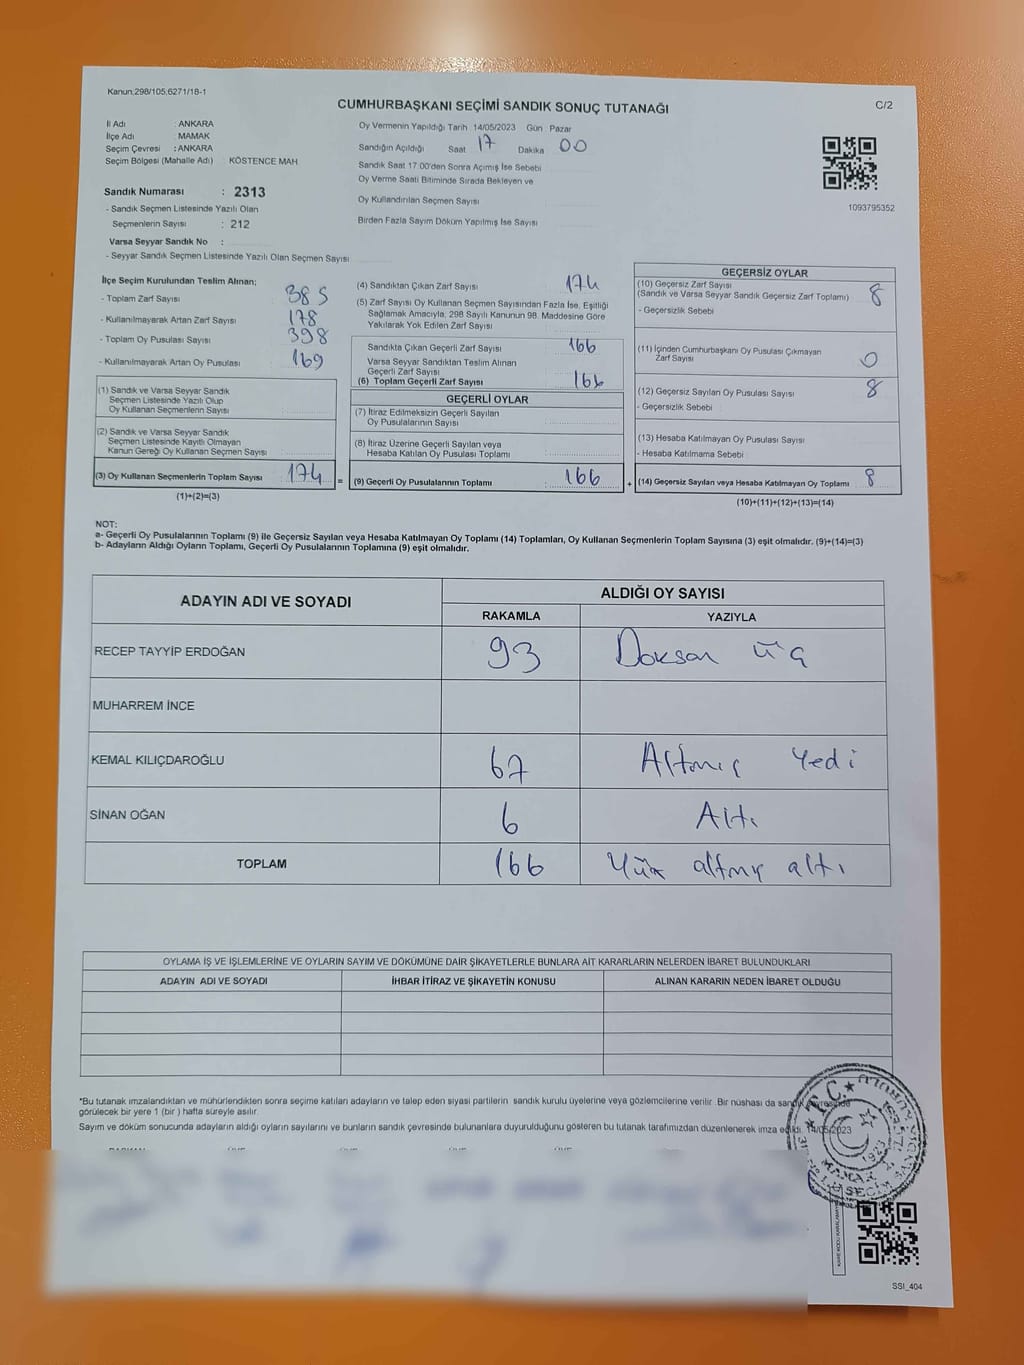 Kanun:298/105,6271/18-1
CUMHURBAŞKANI SEÇİMİ SANDIK SONUÇ TUTANAĞI
C/2
İl Adı : ANKARA
İlçe Adı : MAMAK
Seçim Çevresi : ANKARA
Seçim Bölgesi (Mahalle Adı) : KÖSTENCE MAH
Oy Vermenin Yapıldığı Tarih 14/05/2023 Gün Pazar
Sandığın Açıldığı Saat 17 Dakika 00
Sandık Saat 17:00'den Sonra Açımış İse Sebebi
Oy Verme Saati Bitiminde Sırada Bekleyen ve
Oy Kullandırılan Seçmen Sayısı
Birden Fazla Sayım Döküm Yapılmış İse Sayısı
1093795352
Sandık Numarası : 2313
- Sandık Seçmen Listesinde Yazılı Olan
Seçmenlerin Sayısı : 212
Varsa Seyyar Sandık No :
- Seyyar Sandık Seçmen Listesinde Yazılı Olan Seçmen Sayısı
İlçe Seçim Kurulundan Teslim Alınan;
- Toplam Zarf Sayısı 385
- Kullanılmayarak Artan Zarf Sayısı 178
- Toplam Oy Pusulası Sayısı 398
- Kullanılmayarak Artan Oy Pusulası 169
(1) Sandık ve Varsa Seyyar Sandık
Seçmen Listesinde Yazılı Olup
Oy Kullanan Seçmenlerin Sayısı
(2) Sandık ve Varsa Seyyar Sandık
Seçmen Listesinde Kayıtlı Olmayan
Kanun Gereği Oy Kullanan Seçmen Sayısı
(3) Oy Kullanan Seçmenlerin Toplam Sayısı 174 =
(1)+(2)=(3)
(4) Sandıktan Çıkan Zarf Sayısı 174
(5) Zarf Sayısı Oy Kullanan Seçmen Sayısından Fazla İse, Eşitliği
Sağlamak Amacıyla, 298 Sayılı Kanunun 98. Maddesine Göre
Yakılarak Yok Edilen Zarf Sayısı
Sandıkta Çıkan Geçerli Zarf Sayısı 166
Varsa Seyyar Sandıktan Teslim Alınan
Geçerli Zarf Sayısı
(6) Toplam Geçerli Zarf Sayısı 166
GEÇERLİ OYLAR
(7) İtiraz Edilmeksizin Geçerli Sayılan
Oy Pusulalarının Sayısı
(8) İtiraz Üzerine Geçerli Sayılan veya
Hesaba Katılan Oy Pusulası Toplamı
(9) Geçerli Oy Pusulalarının Toplamı : 166 +
GEÇERSİZ OYLAR
(10) Geçersiz Zarf Sayısı
(Sandık ve Varsa Seyyar Sandık Geçersiz Zarf Toplamı) 8
- Geçersizlik Sebebi
(11) İçinden Cumhurbaşkanı Oy Pusulası Çıkmayan
Zarf Sayısı 0
(12) Geçersiz Sayılan Oy Pusulası Sayısı 8
- Geçersizlik Sebebi
(13) Hesaba Katılmayan Oy Pusulası Sayısı
- Hesaba Katılmama Sebebi
(14) Geçersiz Sayılan veya Hesaba Katılmayan Oy Toplamı 8
(10)+(11)+(12)+(13)=(14)
NOT:
a- Geçerli Oy Pusulalarının Toplamı (9) ile Geçersiz Sayılan veya Hesaba Katılmayan Oy Toplamı (14) Toplamları, Oy Kullanan Seçmenlerin Toplam Sayısına (3) eşit olmalıdır. (9)+(14)=(3)
b- Adayların Aldığı Oyların Toplamı, Geçerli Oy Pusulalarının Toplamına (9) eşit olmalıdır.
ADAYIN ADI VE SOYADI
ALDIĞI OY SAYISI
RAKAMLA YAZIYLA
RECEP TAYYİP ERDOĞAN 93 Doksan üç
MUHARREM İNCE
KEMAL KILIÇDAROĞLU 67 Altmış Yedi
SİNAN OĞAN 6 Altı
TOPLAM 166 Yüz altmış altı
OYLAMA İŞ VE İŞLEMLERİNE VE OYLARIN SAYIM VE DÖKÜMÜNE DAİR ŞİKAYETLERLE BUNLARA AİT KARARLARIN NELERDEN İBARET BULUNDUKLARI
ADAYIN ADI VE SOYADI İHBAR İTİRAZ VE ŞİKAYETİN KONUSU ALINAN KARARIN NEDEN İBARET OLDUĞU
*Bu tutanak imzalandıktan ve mühürlendikten sonra seçime katılan adayların ve talep eden siyasi partilerin sandık kurulu üyelerine veya gözlemcilerine verilir .Bir nüshası da sandık çevresinde
görülecek bir yere 1 (bir ) hafta süreyle asılır.
Sayım ve döküm sonucunda adayların aldığı oyların sayılarını ve bunların sandık çevresinde bulunanlara duyurulduğunu gösteren bu tutanak tarafımızdan düzenlenerek imza edildi. 14/05/2023
T.C.
1923
MAMAK
SSI_404